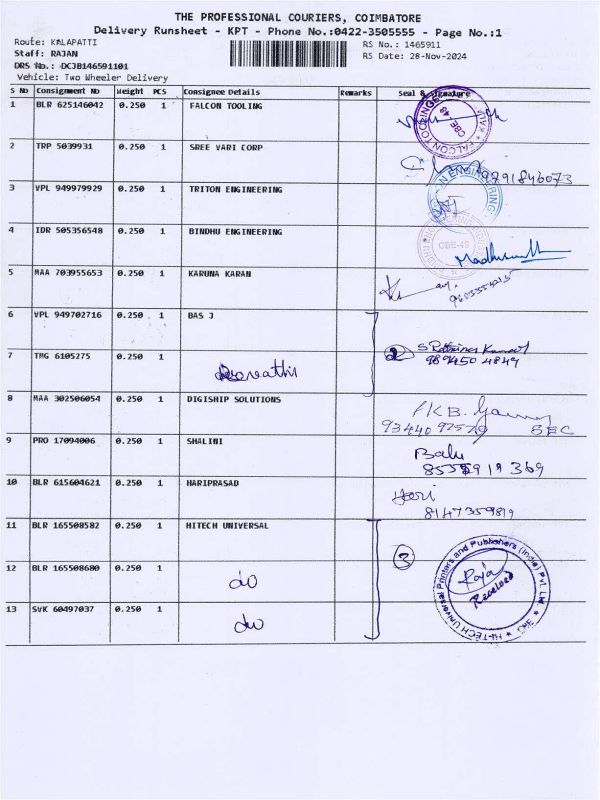 THE PROFESSIONAL COURIERS, COIMBATORE
Delivery Runsheet - KPT - Phone No.:0422-3505555 - Page No.:1
Route: KALAPATTI RS No.: 1465911
Staff: RAJAN RS Date: 28-Nov-2024
DRS No.: DCJB146591101
Vehicle: Two Wheeler Delivery
S No Consignment No Weight PCS Consignee Details Remarks Seal & Signature
1 BLR 625146042 0.250 1 FALCON TOOLING
CBE-48
2 TRP 5039931 0.250 1 SREE VARI CORP
9791846073
3 VPL 949979929 0.250 1 TRITON ENGINEERING
4 IDR 505356548 0.250 1 BINDHU ENGINEERING
CBE-48
5 MAA 703955653 0.250 1 KARUNA KARAN
6 VPL 949702716 0.250 1 BAS J
7 TMG 6105275 0.250 1 2
989450 4849
8 MAA 302506054 0.250 1 DIGISHIP SOLUTIONS
9 PRO 17094006 0.250 1 SHALINI
Balu
10 BLR 615604621 0.250 1 HARIPRASAD
Hari
8147359819
11 BLR 165508582 0.250 1 HITECH UNIVERSAL
3
12 BLR 165508680 0.250 1 do
13 SVK 60497037 0.250 1 do
Hi-TECH Universal Printers and Publishers (India) Pvt. Ltd.
Raja
Received